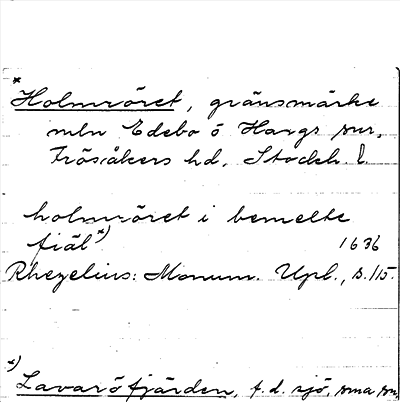 *
Holmröret, gränsmärke
mln Edebo o Hargs snr,
Frösåkers hd, Stockh. l.
holmröret i bemelte
fiäl x)
1636
Rhezelius: Monum. Upl., s. 115.
x)
Lavaröfjärden, f. d. sjö, sma snr,